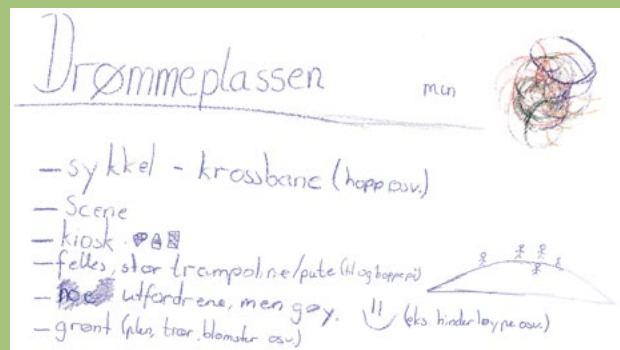 Drømmeplassen min
- sykkel - krossbane (hopp osv.)
- Scene
- kiosk
- felles, stor trampoline/pute (til og hoppe på)
- noe utfordrene, men gøy. (eks. hinderløype osv.)
- grønt (plen, trær, blomster osv.)